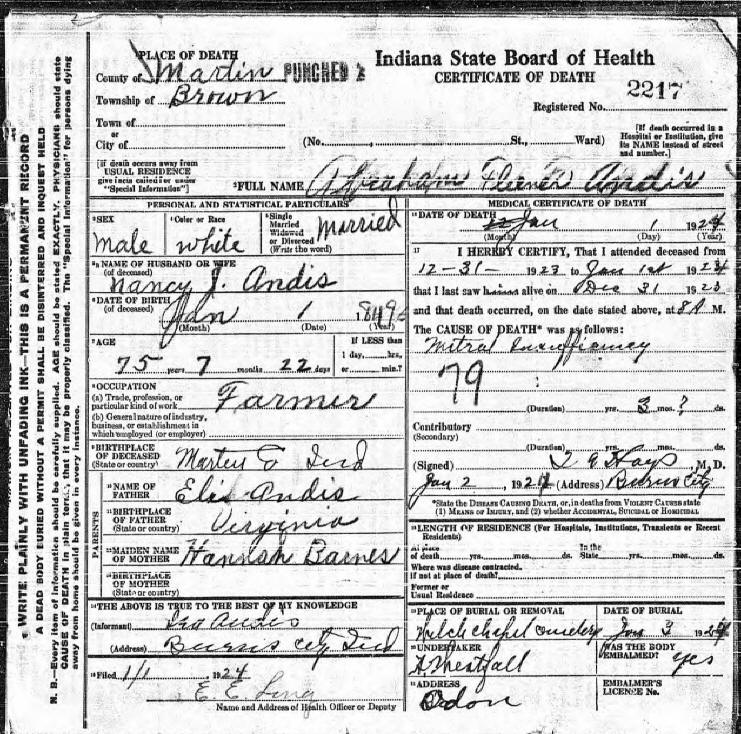 WRITE PLAINLY WITH UNFADING INK—THIS IS A PERMANENT RECORD
A DEAD BODY BURIED WITHOUT A PERMIT SHALL BE DISINTERRED AND INQUEST HELD
N. B.—Every item of information should be carefully supplied. AGE should be stated EXACTLY. PHYSICIANS should state
CAUSE OF DEATH in plain terms, that it may be properly classified. The "Special Information" for persons dying
away from home should be given in every instance.
PLACE OF DEATH
County of Martin PUNCHED
Township of Brown
Town of
or
City of
Indiana State Board of Health
CERTIFICATE OF DEATH
2217
Registered No.
(No. , St., Ward)
[If death occurred in a
Hospital or Institution, give
its NAME instead of street
and number.]
[if death occurs away from
USUAL RESIDENCE
give facts called for under
"Special Information"]
FULL NAME Abraham Andis
PERSONAL AND STATISTICAL PARTICULARS
SEX
male
Color or Race
white
Single
Married
Widowed
or Divorced
(Write the word)
Married
NAME OF HUSBAND OR WIFE
(of deceased)
Nancy J. Andis
DATE OF BIRTH
(of deceased)
Jan 1 1849
(Month) (Date) (Year)
AGE
75 years 7 months 22 days
If LESS than
1 day, hrs.
or min.?
OCCUPATION
(a) Trade, profession, or
particular kind of work Farmer
(b) General nature of industry,
business, or establishment in
which employed (or employer)
BIRTHPLACE
OF DECEASED
(State or country) Martin Co Ind
PARENTS
NAME OF
FATHER Andis
BIRTHPLACE
OF FATHER
(State or country) Virginia
MAIDEN NAME
OF MOTHER Hannah Barnes
BIRTHPLACE
OF MOTHER
(State or country)
THE ABOVE IS TRUE TO THE BEST OF MY KNOWLEDGE
(Informant) Andis
(Address) Burns City Ind
Filed 1/1, 1924
E. E. Long
Name and Address of Health Officer or Deputy
MEDICAL CERTIFICATE OF DEATH
DATE OF DEATH
Jan 1 1924
(Month) (Day) (Year)
17 I HEREBY CERTIFY, That I attended deceased from
12-31- 1923 to Jan 1st 1924
that I last saw him alive on Dec 31 1923
and that death occurred, on the date stated above, at 8 A M.
The CAUSE OF DEATH* was as follows:
Mitral Insufficiency
79
(Duration) yrs. 3 mos. ? ds.
Contributory
(Secondary)
(Duration) yrs. mos. ds.
(Signed) Hays, M. D.
Jan 2, 1924 (Address) Burns City
*State the DISEASE CAUSING DEATH, or, in deaths from VIOLENT CAUSES state
(1) MEANS OF INJURY, and (2) whether ACCIDENTAL, SUICIDAL OR HOMICIDAL
LENGTH OF RESIDENCE (For Hospitals, Institutions, Transients or Recent
Residents)
At place
of death yrs. mos. ds. In the
State yrs. mos. ds.
Where was disease contracted.
If not at place of death?
Former or
Usual Residence
PLACE OF BURIAL OR REMOVAL
Welch Chapel Cemetery
DATE OF BURIAL
Jan 3 1924
UNDERTAKER
A. Westfall
WAS THE BODY
EMBALMED? yes
ADDRESS
Odon
EMBALMER'S
LICENCE No.